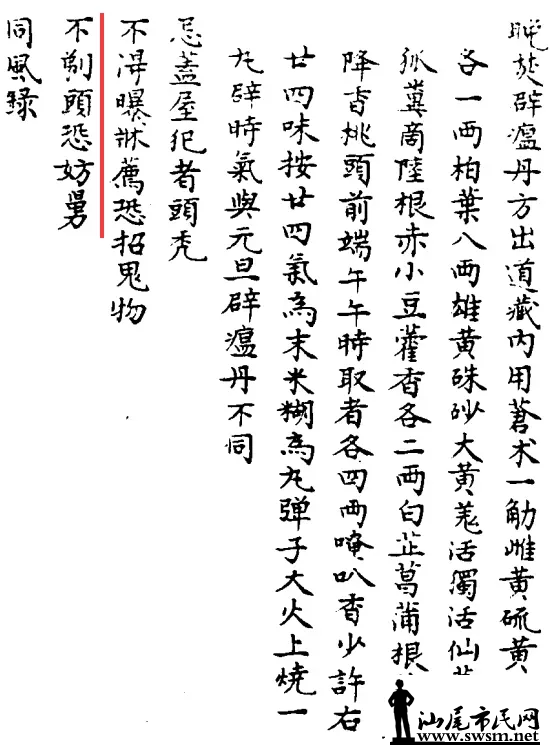 晚焚辟瘟丹方出道藏內用蒼术一觔雌黄硫黄
各一两柏葉八两雄黄硃砂大黄羌活獨活仙
狐糞商陸根赤小豆藿香各二两白芷菖蒲根
降香桃頭前端午午時取者各四两唵叭香少許右
廿四味按廿四氣為末米糊為丸弹子大火上燒一
丸辟時氣與元旦辟瘟丹不同
忌蓋屋犯者頭秃
不淂曝牀薦恐招鬼物
不剃頭恐妨舅
同風録
汕尾市民网
www.swsm.net